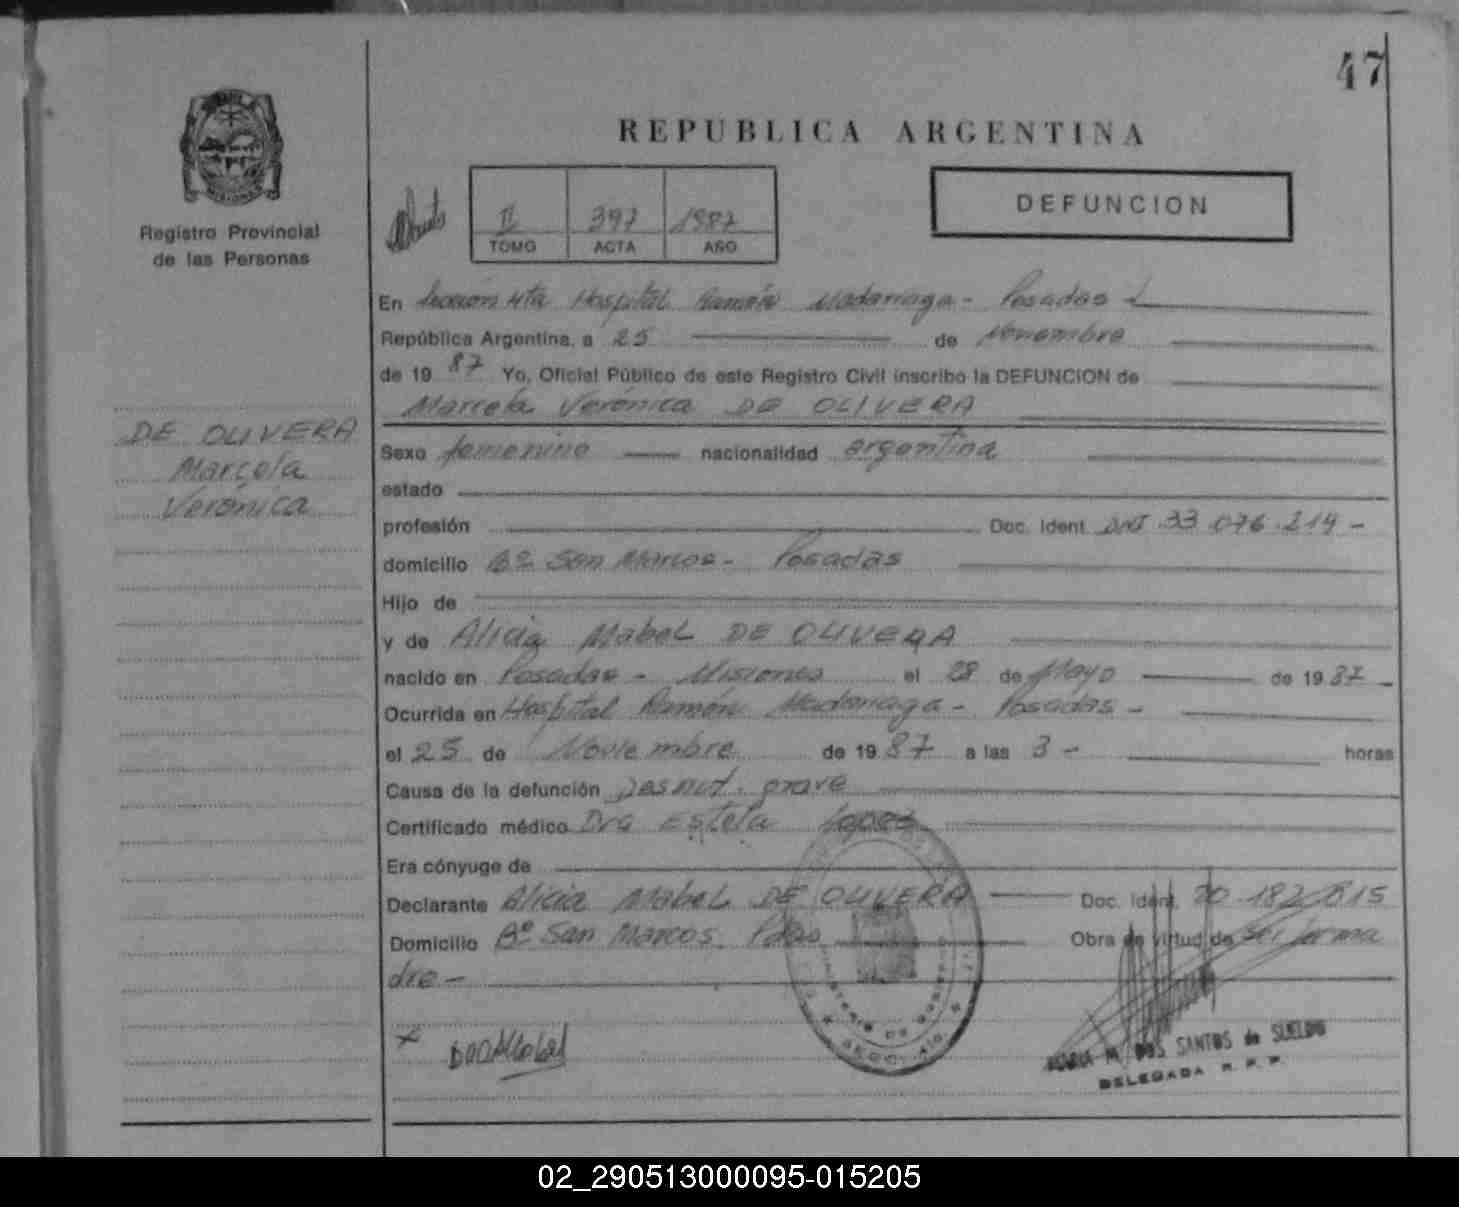 47
REPUBLICA ARGENTINA
DEFUNCION
Registro Provincial
de las Personas
II 397 1987
TOMO ACTA AÑO
En Sección 4ta Hospital Ramón Madariaga - Posadas
República Argentina, a 25 de Noviembre
de 19 87 Yo, Oficial Público de este Registro Civil inscribo la DEFUNCION de
Marcela Verónica DE OLIVERA
DE OLIVERA
Marcela
Verónica
Sexo femenino nacionalidad argentina
estado
profesión Doc. Ident. DNI 33.076.214 -
domicilio Bº San Marcos - Posadas
Hijo de
y de Alicia Mabel DE OLIVERA
nacido en Posadas - Misiones el 28 de Mayo de 19 87
Ocurrida en Hospital Ramón Madariaga - Posadas -
el 25 de Noviembre de 19 87 a las 3 - horas
Causa de la defunción Desnut. grave
Certificado médico Dra Estela Lopez
Era cónyuge de
Declarante Alicia Mabel DE OLIVERA Doc. Ident. 20.182.815
Domicilio Bº San Marcos. Pdas Obra en virtud de ser la ma
dre -
x
M. DOS SANTOS de SUELDO
DELEGADA R. P. P.
02_290513000095-015205